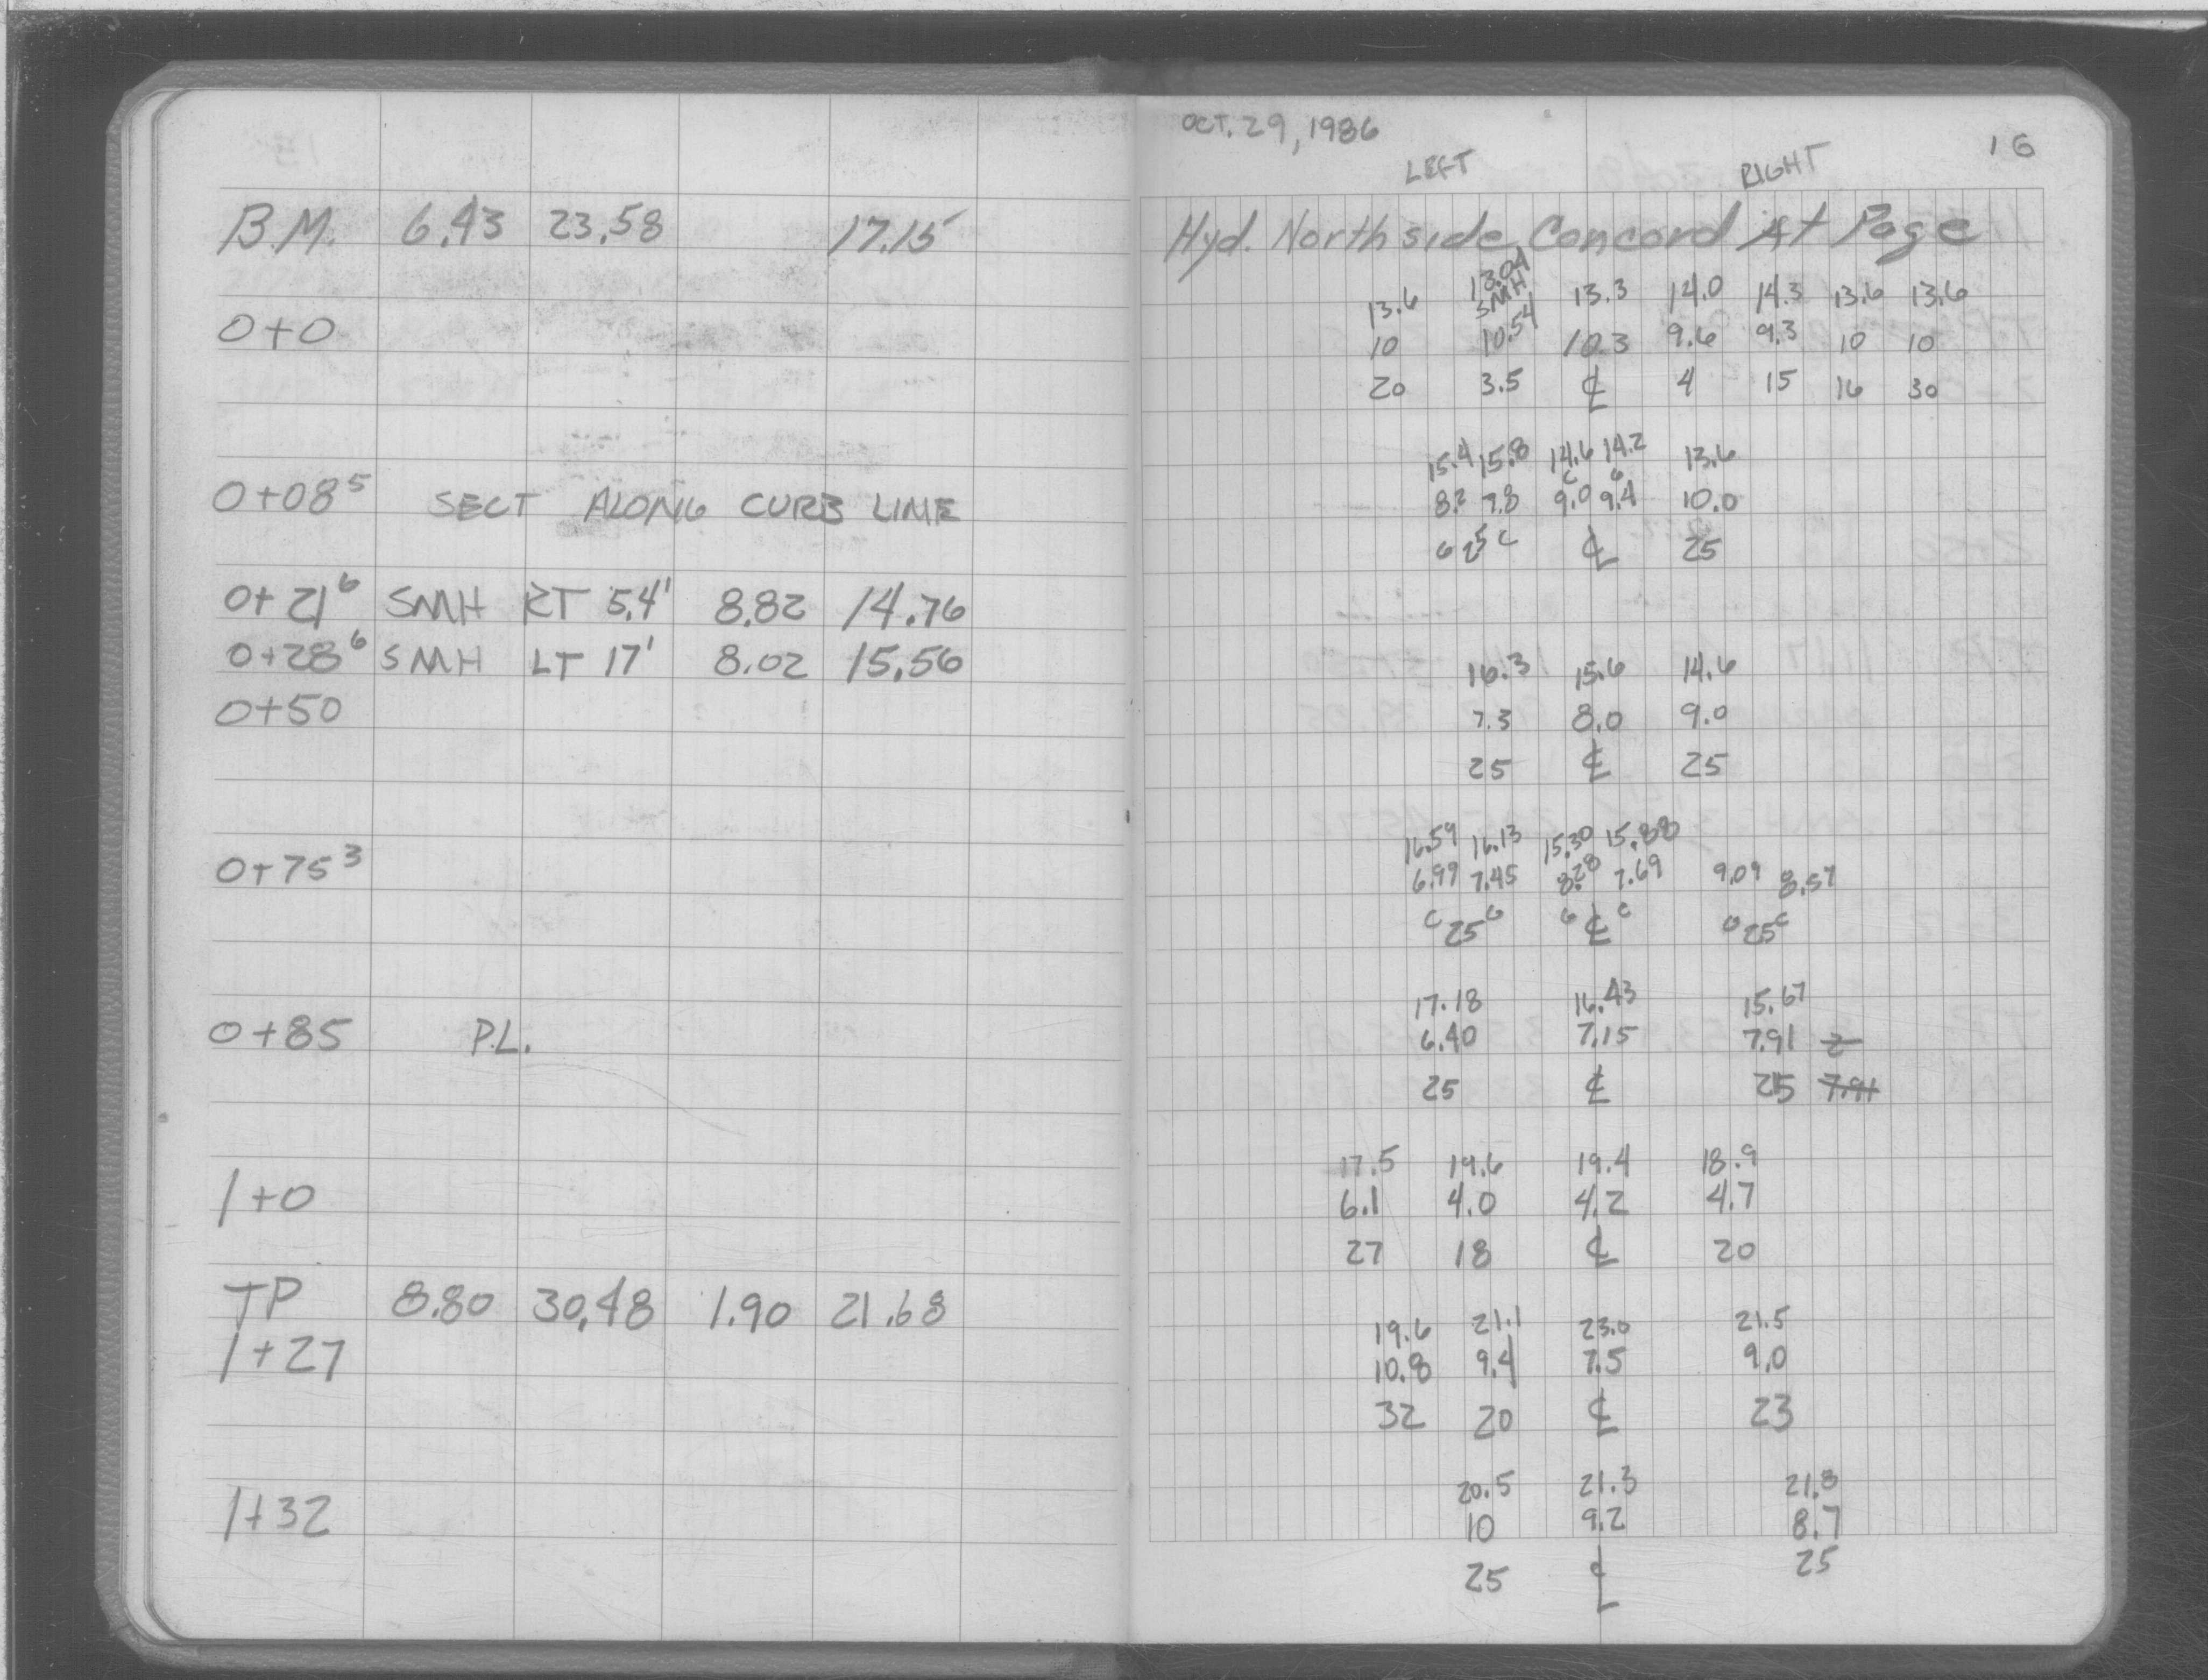 OCT. 29, 1986
16
LEFT RIGHT
B.M. 6.43 23.58 17.15 Hyd. North side Concord At Page
13.6 13.04 SMH 13.3 14.0 14.3 13.6 13.6
0+0 10 10.54 10.3 9.6 9.3 10 10
20 3.5 ℄ 4 15 16 30
15.4 15.8 14.6 14.2 13.6
C G
0+08⁵ SECT ALONG CURB LINE 8.2 7.8 9.0 9.4 10.0
G 25 C ℄ 25
0+21⁶ SMH RT 5.4' 8.82 14.76
0+28⁶ SMH LT 17' 8.02 15.56 16.3 15.6 14.6
0+50 7.3 8.0 9.0
25 ℄ 25
16.59 16.13 15.30 15.88
0+75³ 6.99 7.45 8.28 7.69 9.09 8.57
C 25 G G ℄ C G 25 C
17.18 16.43 15.67
0+85 P.L. 6.40 7.15 7.91 2
25 ℄ 25 7.91
17.5 19.6 19.4 18.9
1+0 6.1 4.0 4.2 4.7
27 18 ℄ 20
TP 8.80 30.48 1.90 21.68
19.6 21.1 23.0 21.5
1+27 10.8 9.4 7.5 9.0
32 20 ℄ 23
20.5 21.3 21.8
1+32 10 9.2 8.7
25 ℄ 25